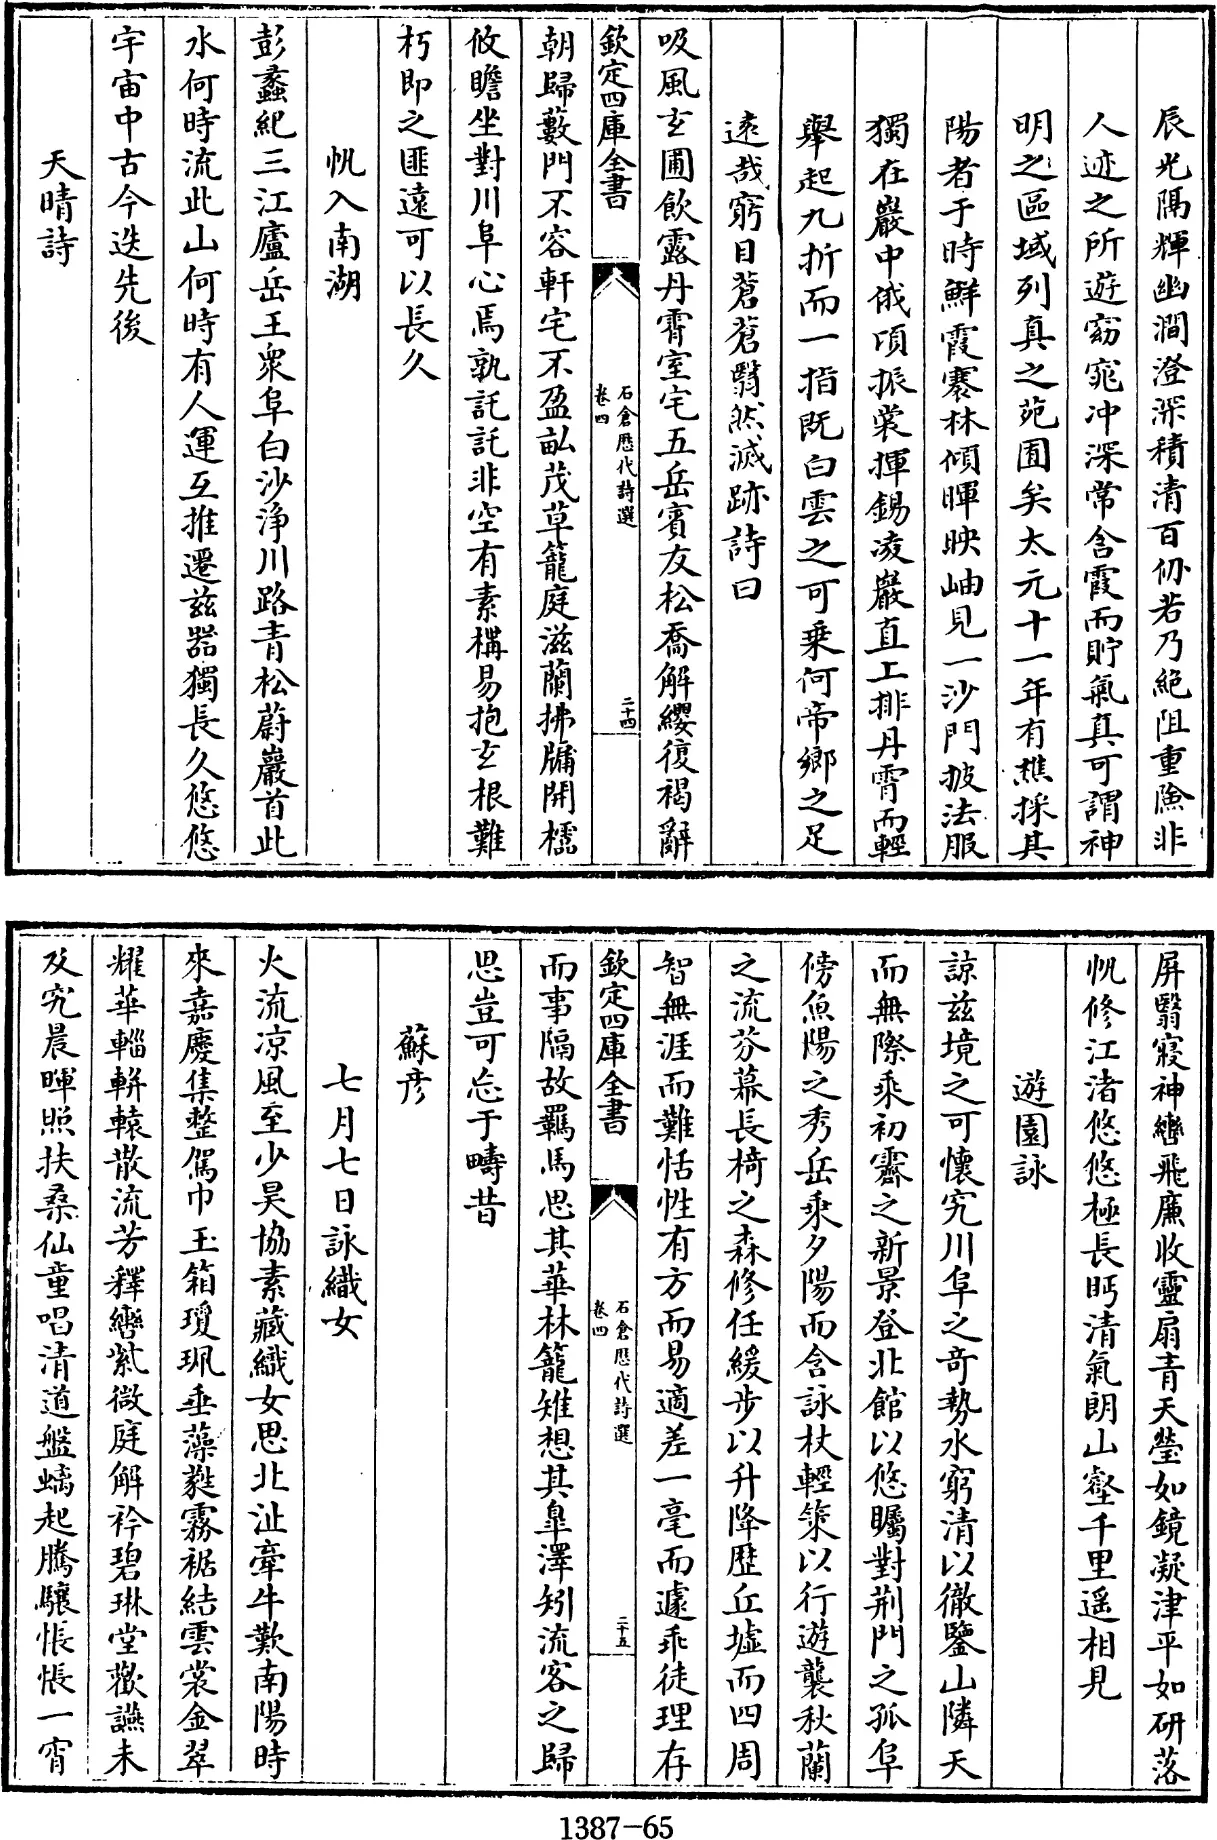 辰光隔輝幽澗澄深積清百仞若乃絶阻重險非
人迹之所遊窈窕冲深常含霞而貯氣真可謂神
明之區域列真之苑囿矣太元十一年有樵採其
陽者于時鮮霞褰林傾暉映岫見一沙門披法服
獨在巖中俄頃振裳揮錫凌巖直上排丹霄而輕
舉起九折而一指既白雲之可乗何帝鄉之足
逺哉窮目蒼蒼翳然滅跡詩曰
吸風玄圃飲露丹霄室宅五岳賓友松喬解纓復褐辭
欽定四庫全書
石倉歴代詩選
卷四
二十四
朝歸藪門不容軒宅不盈畆茂草籠庭滋蘭拂牖開櫺
攸瞻坐對川阜心焉孰託託非空有素構易抱玄根難
朽即之匪遠可以長久
帆入南湖
彭蠡紀三江廬岳主衆阜白沙浄川路青松蔚巖首此
水何時流此山何時有人運互推遷兹器獨長久悠悠
宇宙中古今迭先後
天晴詩
屏翳寢神轡飛廉收靈扇青天瑩如鏡凝津平如研落
帆修江渚悠悠極長眄清氣朗山壑千里遥相見
遊園詠
諒兹境之可懷究川阜之竒勢水窮清以徹鑒山隣天
而無際乘初霽之新景登北館以悠矚對荆門之孤阜
傍魚陽之秀岳乘夕陽而含詠杖輕策以行遊襲秋蘭
之流芬幕長椅之森修任緩步以升降歴丘墟而四周
智無涯而難恬性有方而易適差一毫而遽乖徒理存
欽定四庫全書
石倉歴代詩選
卷四
二十五
而事隔故羈馬思其華林籠雉想其臯澤矧流客之歸
思豈可忘于疇昔
蘇彦
七月七日詠織女
火流涼風至少昊協素藏織女思北沚牽牛歎南陽時
來嘉慶集整駕巾玉箱瓊珮垂藻蕤霧裾結雲裳金翠
耀華輜軿轅散流芳釋轡紫微庭解衿碧琳堂歡讌未
及究晨暉照扶桑仙童唱清道盤螭起騰驤悵悵一宵
1387-65